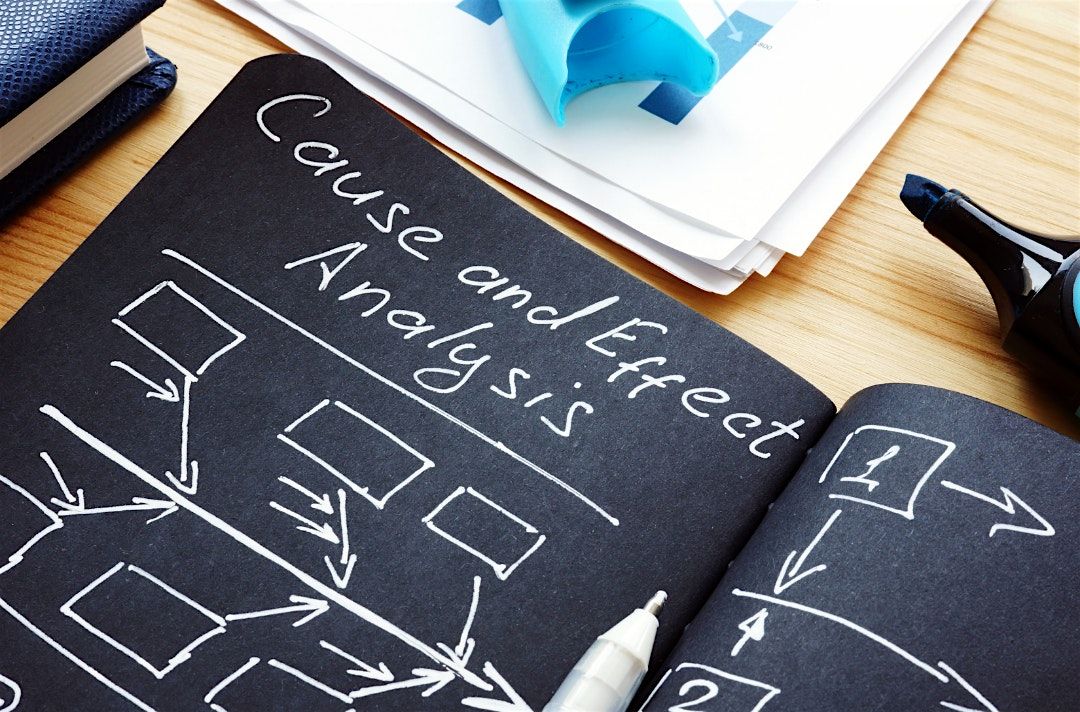 Cause and Effect
Analysis
1
2